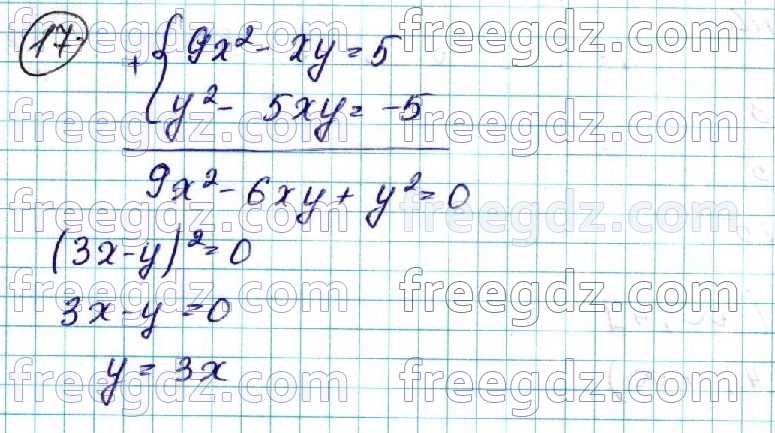 17.
+ { 9x² - xy = 5
y² - 5xy = -5
9x² - 6xy + y² = 0
(3x - y)² = 0
3x - y = 0
y = 3x
freegdz.com freegdz.com
freegdz.com freegdz.com
freegdz.com freegdz.com
freegdz.com freegdz.com
freegdz.com freegdz.com